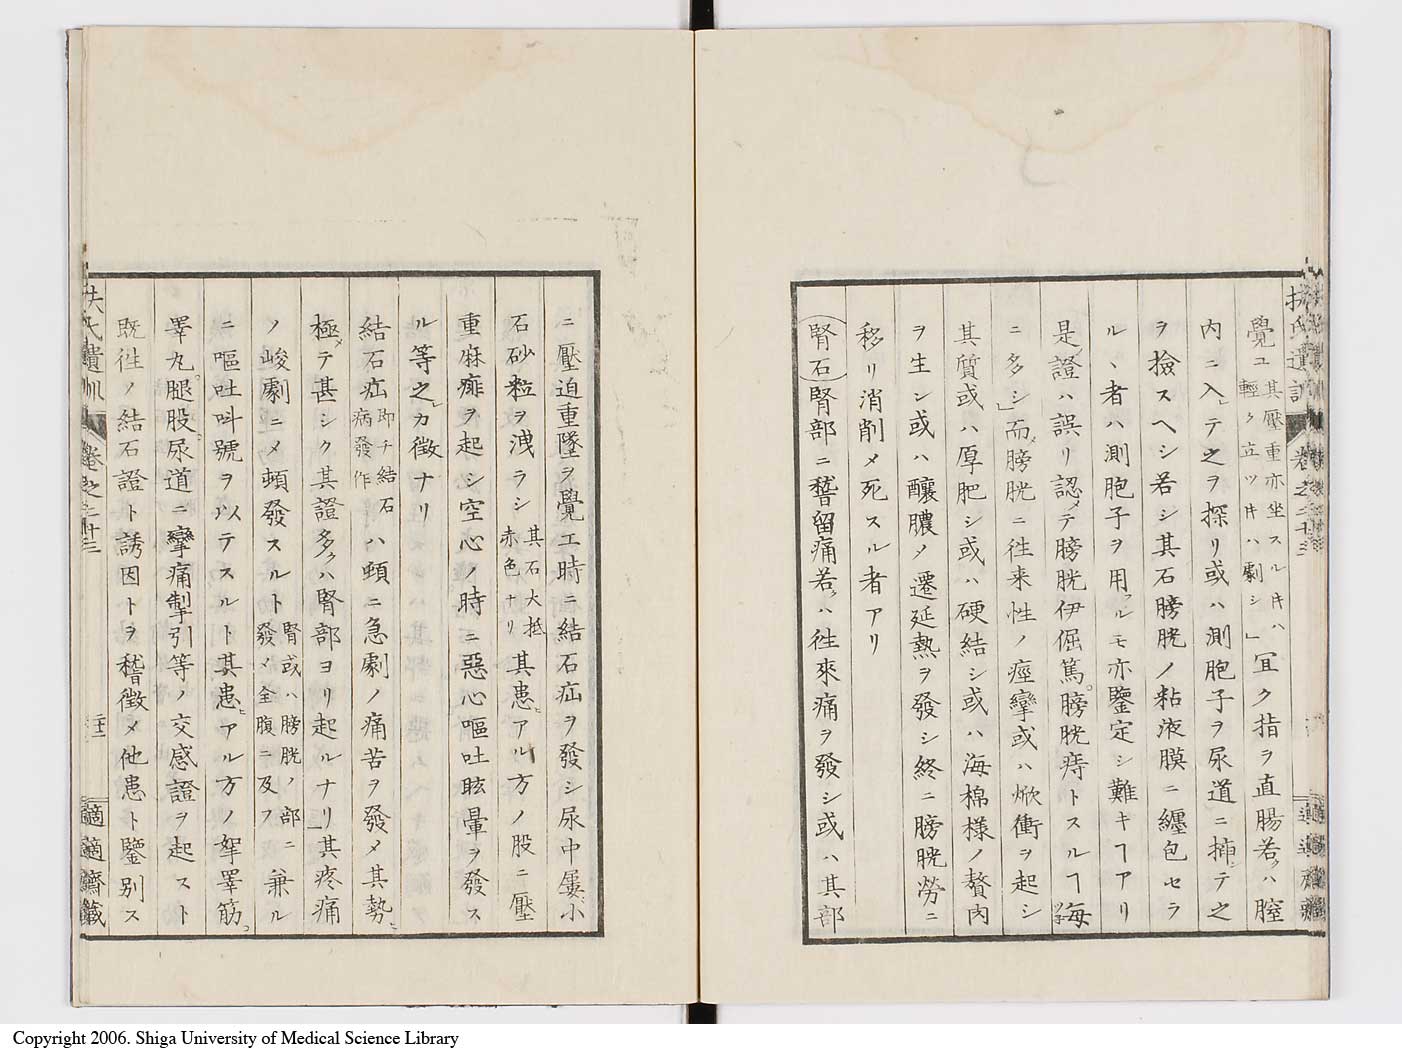 覺ユ其壓重亦坐スルキハ輕ク立ツキハ劇シ」冝ク指ヲ直腸若クハ膣
内ニ入」テ之ヲ探リ或ハ測胞子ヲ尿道ニ挿シテ之
ヲ撿スヘシ若シ其石膀胱ノ粘液膜ニ纏包セラ
ルヽ者ハ測胞子ヲ用フルモ亦鑒定シ難キヿアリ
是證ハ誤リ認メテ膀胱伊倔篤。膀胱痔トスルヿ毎
ニ多シ」而メ膀胱ニ徃来性ノ痙攣或ハ焮衝ヲ起シ
其質或ハ厚肥シ或ハ硬結シ或ハ海棉様ノ贅肉
ヲ生シ或ハ釀膿メ遷延熱ヲ發シ終ニ膀胱勞ニ
移リ消削メ死スル者アリ
腎石 腎部ニ稽留痛若クハ徃來痛ヲ發シ或ハ其部
ニ壓迫重墜ヲ覺エ時ニ結石疝ヲ發シ尿中屢〻小
石砂粒ヲ洩ラシ其石大抵赤色ナリ其患ヒアル方ノ股ニ壓
重麻痺ヲ起シ空心ノ時ニ惡心嘔吐眩暈ヲ發ス
ル等之レカ徴ナリ
結石疝即チ結石病發作ハ頓ニ急劇ノ痛苦ヲ發メ其勢ヒ
極メテ甚シク其證多クハ腎部ヨリ起ルナリ」其疼痛
ノ峻劇ニメ頓發スルト腎或ハ膀胱ノ部ニ發メ全腹ニ及フ兼ル
ニ嘔吐呌號ヲ以テスルト其患ヒアル方ノ挛睪筋
睪丸。腿股。尿道ニ攣痛掣引等ノ交感證ヲ起スト
既徃ノ結石證ト誘因トヲ稽徴メ他患ト鑒別ス
扶氏遺訓 巻之二十三
二十二 適適齋藏
Copyright 2006. Shiga University of Medical Science Library